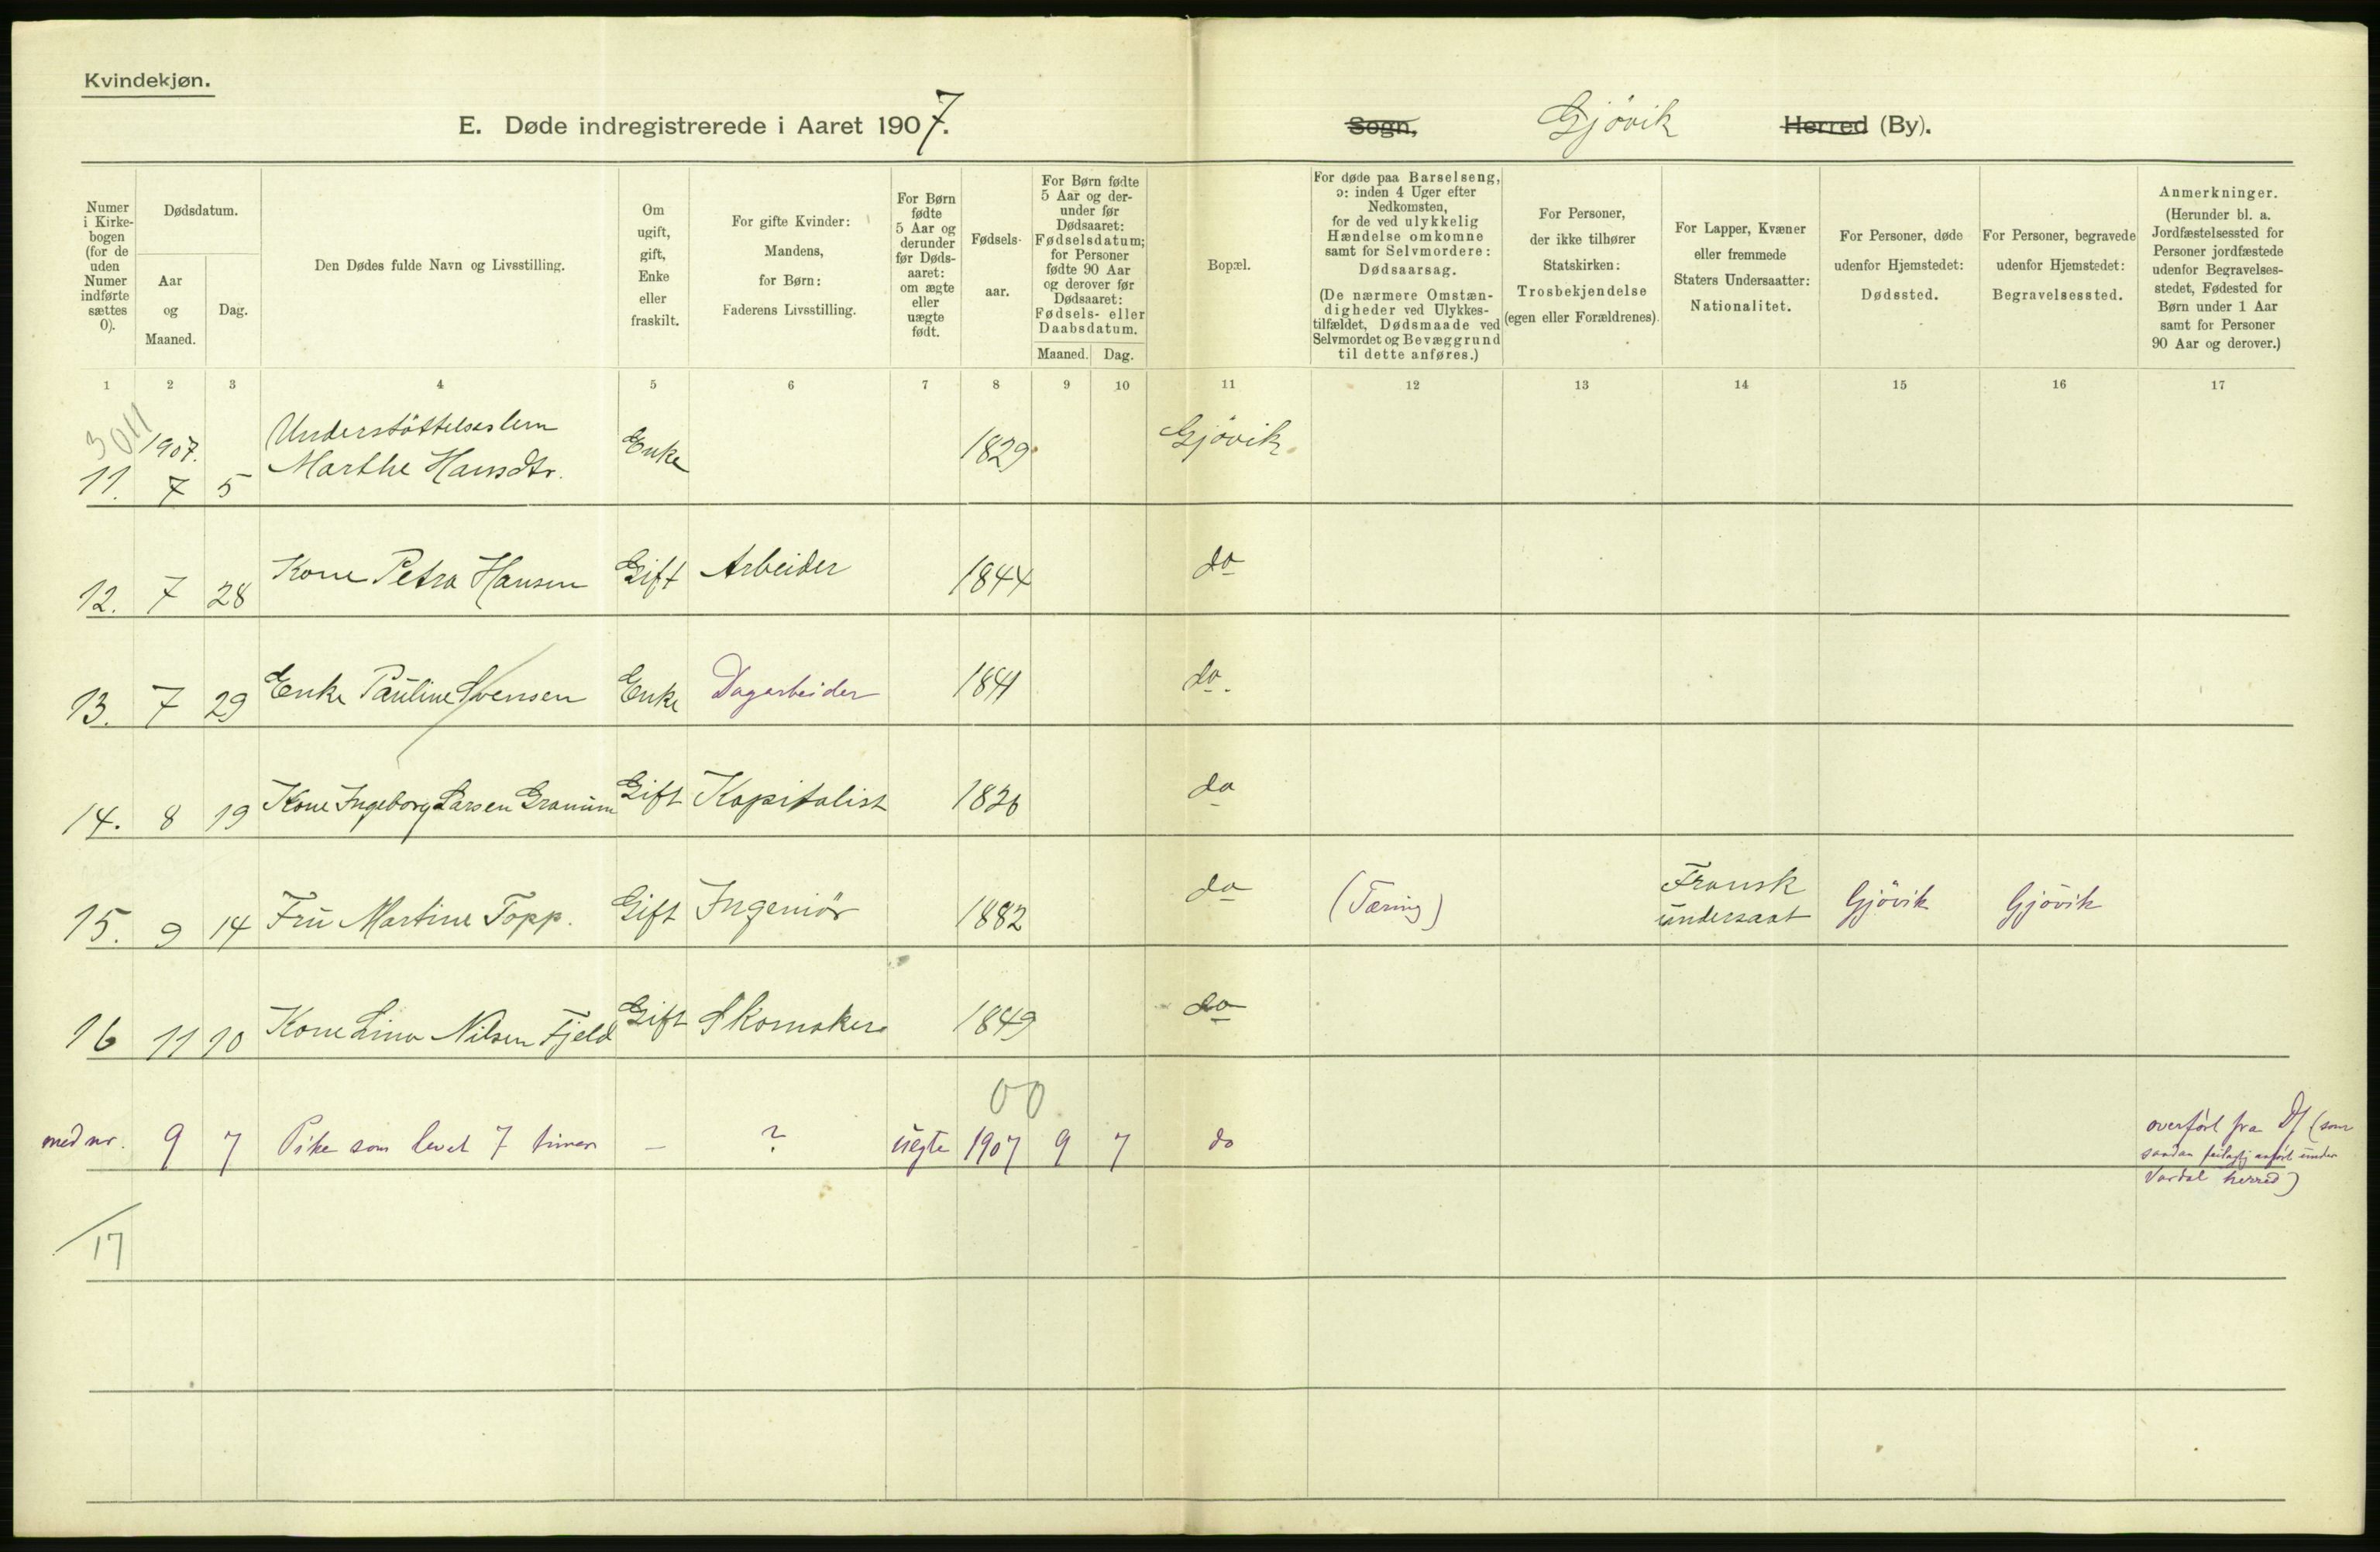 Kvindekjøn.
E. Døde indregistrerede i Aaret 1907.
Sogn, Gjövik Herred (By).
Numer
i Kirke-
bogen
(for de
uden
Numer
indførte
sættes
0).
Dødsdatum.
Aar
og
Maaned.
Dag.
Den Dødes fulde Navn og Livsstilling.
Om
ugift,
gift,
Enke
eller
fraskilt.
For gifte Kvinder:
Mandens,
for Børn:
Faderens Livsstilling.
For Børn
fødte
5 Aar og
derunder
før Døds-
aaret:
om ægte
eller
uægte
født.
Fødsels-
aar.
For Børn fødte
5 Aar og der-
under før
Dødsaaret:
Fødselsdatum;
for Personer
fødte 90 Aar
og derover før
Dødsaaret:
Fødsels- eller
Daabsdatum.
Maaned. Dag.
Bopæl.
For døde paa Barselseng,
ɔ: inden 4 Uger efter
Nedkomsten,
for de ved ulykkelig
Hændelse omkomne
samt for Selvmordere:
Dødsaarsag.
(De nærmere Omstæn-
digheder ved Ulykkes-
tilfældet, Dødsmaade ved
Selvmordet og Bevæggrund
til dette anføres.)
For Personer,
der ikke tilhører
Statskirken:
Trosbekjendelse
(egen eller Forældrenes).
For Lapper, Kvæner
eller fremmede
Staters Undersaatter:
Nationalitet.
For Personer, døde
udenfor Hjemstedet:
Dødssted.
For Personer, begravede
udenfor Hjemstedet:
Begravelsessted.
Anmerkninger.
(Herunder bl. a.
Jordfæstelsessted for
Personer jordfæstede
udenfor Begravelses-
stedet, Fødested for
Børn under 1 Aar
samt for Personer
90 Aar og derover.)
1 2 3 4 5 6 7 8 9 10 11 12 13 14 15 16 17
1907. Understöttelseslem
11. 7 5 Marthe Hansdtr. Enke 1829 Gjövik
12. 7 28 Kone Petra Hansen Gift Arbeider 1844 do
13. 7 29 Enke Pauline Svensen Enke Dagarbeider 1841 do.
14. 8 19 Kone Ingeborg Larsen Granum Gift Kapitalist 1826 do
15. 9 14 Fru Martine Topp. Gift Ingeniör 1882 do (Tæring) Fransk
undersaat Gjövik Gjövik
16 11 10 Kone Lina Nilsen Fjeld Gift Skomaker 1849 do
00
med nr. 9 7 Pike som levet 7 timer — ? uegte 1907 9 7 do overført fra Df (som
saadan feilagtig anført under
Vardal herred)
17